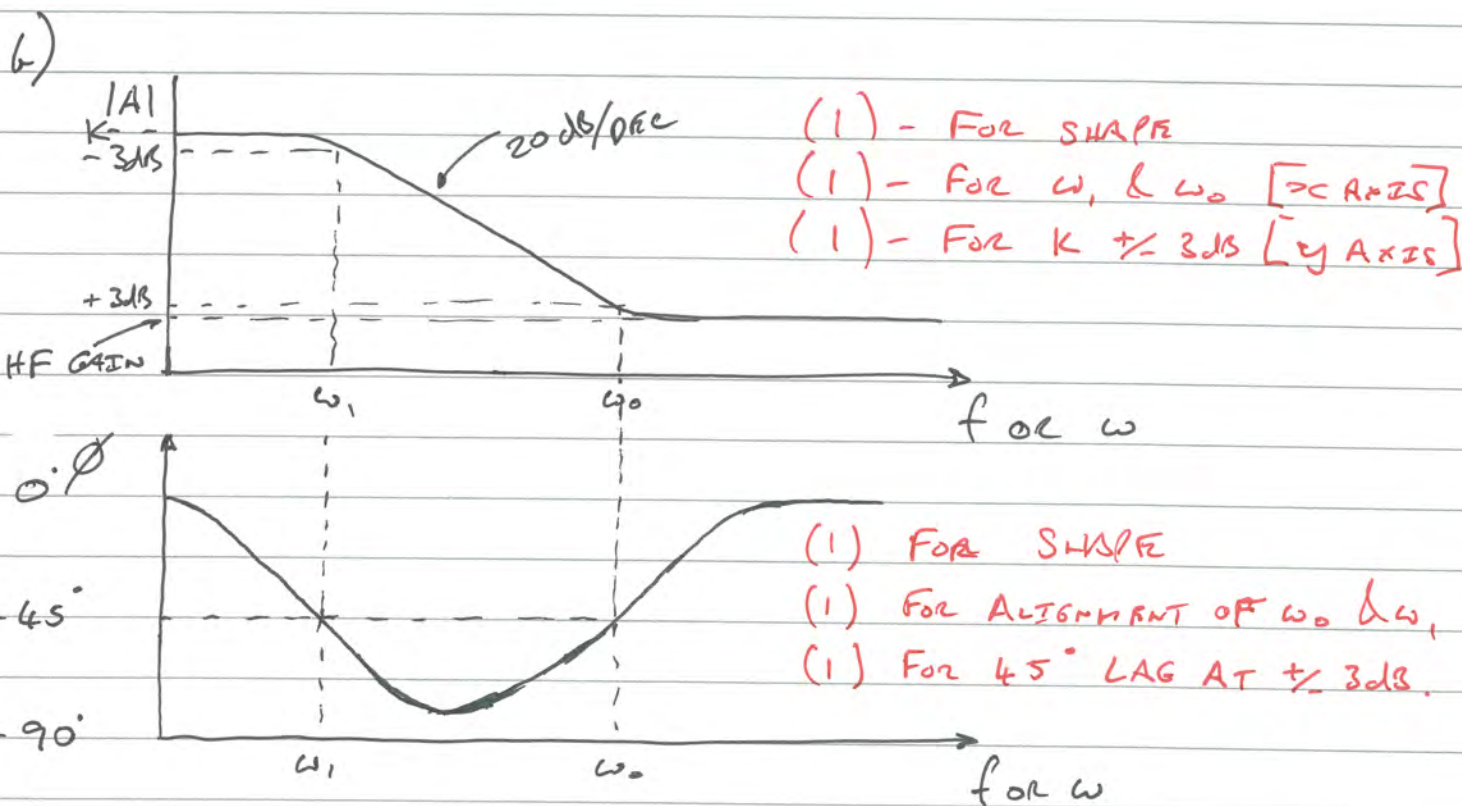 b)
|A|
K
- 3dB
20 dB/DEC
+ 3dB
HF GAIN
ω₁ ω₀
f OR ω
(1) - FOR SHAPE
(1) - FOR ω₁ & ω₀ [x AXIS]
(1) - FOR K +/- 3dB [y AXIS]
0° Ø
- 45°
- 90°
ω₁ ω₀
f OR ω
(1) FOR SHAPE
(1) FOR ALIGNMENT OF ω₀ & ω₁
(1) FOR 45° LAG AT +/- 3dB.